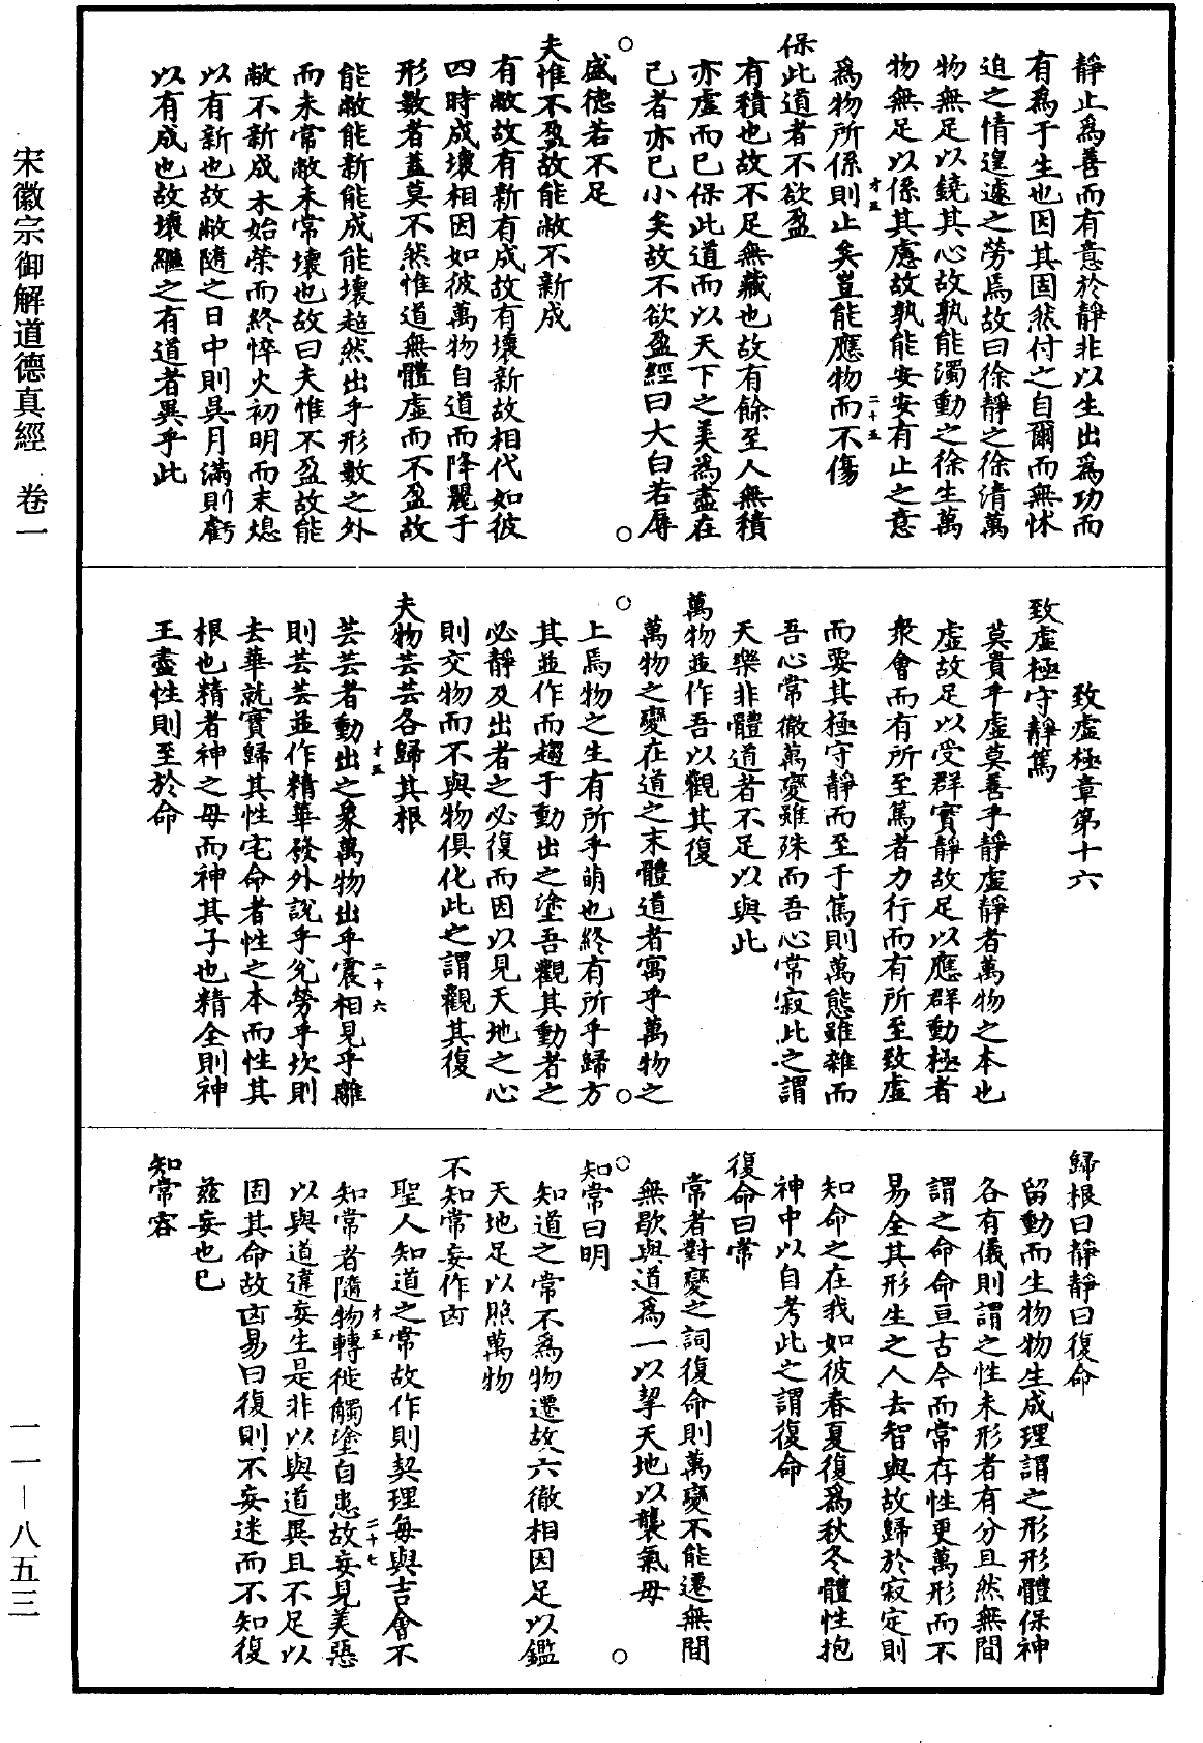 靜止爲善而有意於靜非以生出爲功而
有爲于生也因其固然付之自爾而無怵
迫之情遑遽之勞焉故曰徐靜之徐清萬
物無足以鐃其心故孰能濁動之徐生萬
物無足以係其慮故孰能安安有止之意
才五
二十五
爲物所係則止矣豈能應物而不傷
保此道者不欲盈
有積也故不足無藏也故有餘至人無積
亦虛而已保此道而以天下之美爲盡在
己者亦已小矣故不欲盈經曰大白若辱
盛德若不足
夫惟不盈故能敝不新成
有敝故有新有成故有壞新故相代如彼
四時成壞相因如彼萬物自道而降麗于
形數者蓋莫不然惟道無體虛而不盈故
能敝能新能成能壞超然出乎形數之外
而未常敝未常壞也故曰夫惟不盈故能
敝不新成木始榮而終悴火初明而末熄
以有新也故敝隨之日中則昃月滿則虧
以有成也故壞繼之有道者異乎此
致虛極章第十六
致虛極守靜篤
莫貴乎虛莫善乎靜虛靜者萬物之本也
虛故足以受群實靜故足以應群動極者
衆會而有所至篤者力行而有所至致虛
而要其極守靜而至于篤則萬態雖雜而
吾心常徹萬變雖殊而吾心常寂此之謂
天樂非體道者不足以與此
萬物並作吾以觀其復
萬物之變在道之末體道者寓乎萬物之
上焉物之生有所乎萌也終有所乎歸方
其並作而趨于動出之塗吾觀其動者之
必靜及出者之必復而因以見天地之心
則交物而不與物俱化此之謂觀其復
夫物芸芸各歸其根
才五
二十六
芸芸者動出之衆萬物出乎震相見乎離
則芸芸並作精華發外說乎兌勞乎坎則
去華就實歸其性宅命者性之本而性其
根也精者神之母而神其子也精全則神
王盡性則至於命
歸根曰靜靜曰復命
留動而生物物生成理謂之形形體保神
各有儀則謂之性未形者有分且然無間
謂之命命亘古今而常存性更萬形而不
易全其形生之人去智與故歸於寂定則
知命之在我如彼春夏復爲秋冬體性抱
神中以自考此之謂復命
復命曰常
常者對變之詞復命則萬變不能遷無間
無歇與道爲一以挈天地以襲氣母
知常曰明
知道之常不爲物遷故六徹相因足以鑑
天地足以照萬物
不知常妄作凶
聖人知道之常故作則契理每與吉會不
才五
二十七
知常者隨物轉徙觸塗自患故妄見美惡
以與道違妄生是非以與道異且不足以
固其命故凶易曰復則不妄迷而不知復
茲妄也已
知常容
宋徽宗御解道德真經 卷一
一一—八五三